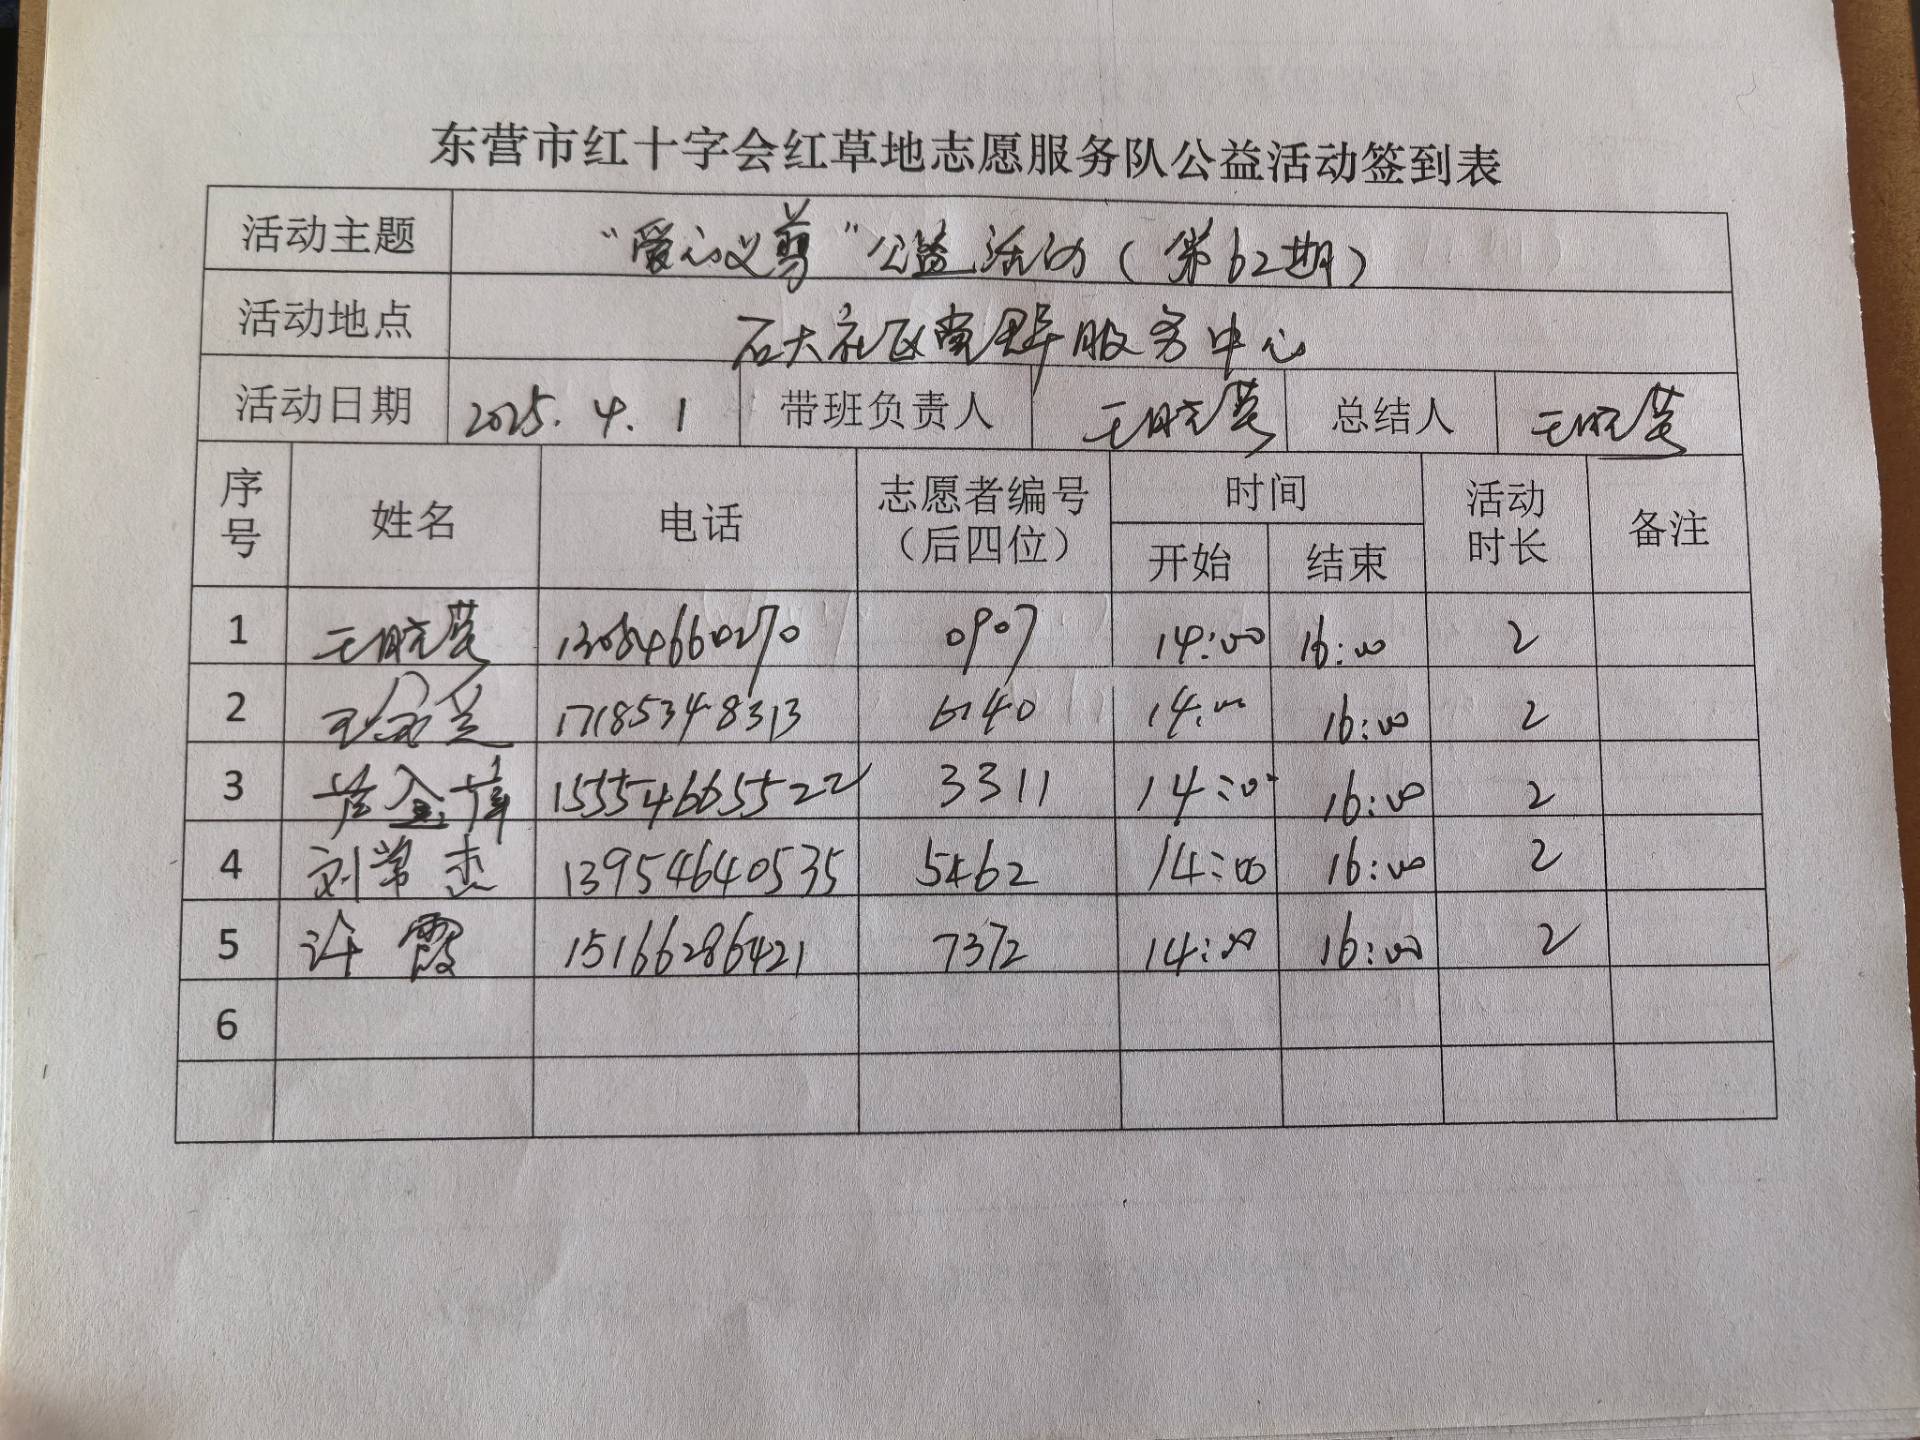 东营市红十字会红草地志愿服务队公益活动签到表
活动主题 “爱心义剪”公益活动（第62期）
活动地点 石大社区党群服务中心
活动日期 2025.4.1 带班负责人 王晓营 总结人 王晓营
序号 姓名 电话 志愿者编号（后四位） 时间 开始 结束 活动时长 备注
1 王晓营 13054660270 0907 14:00 16:00 2
2 17185348313 6140 14:00 16:00 2
3 15554665522 3311 14:00 16:00 2
4 刘常杰 13954640535 5462 14:00 16:00 2
5 许霞 15166286421 7372 14:00 16:00 2
6